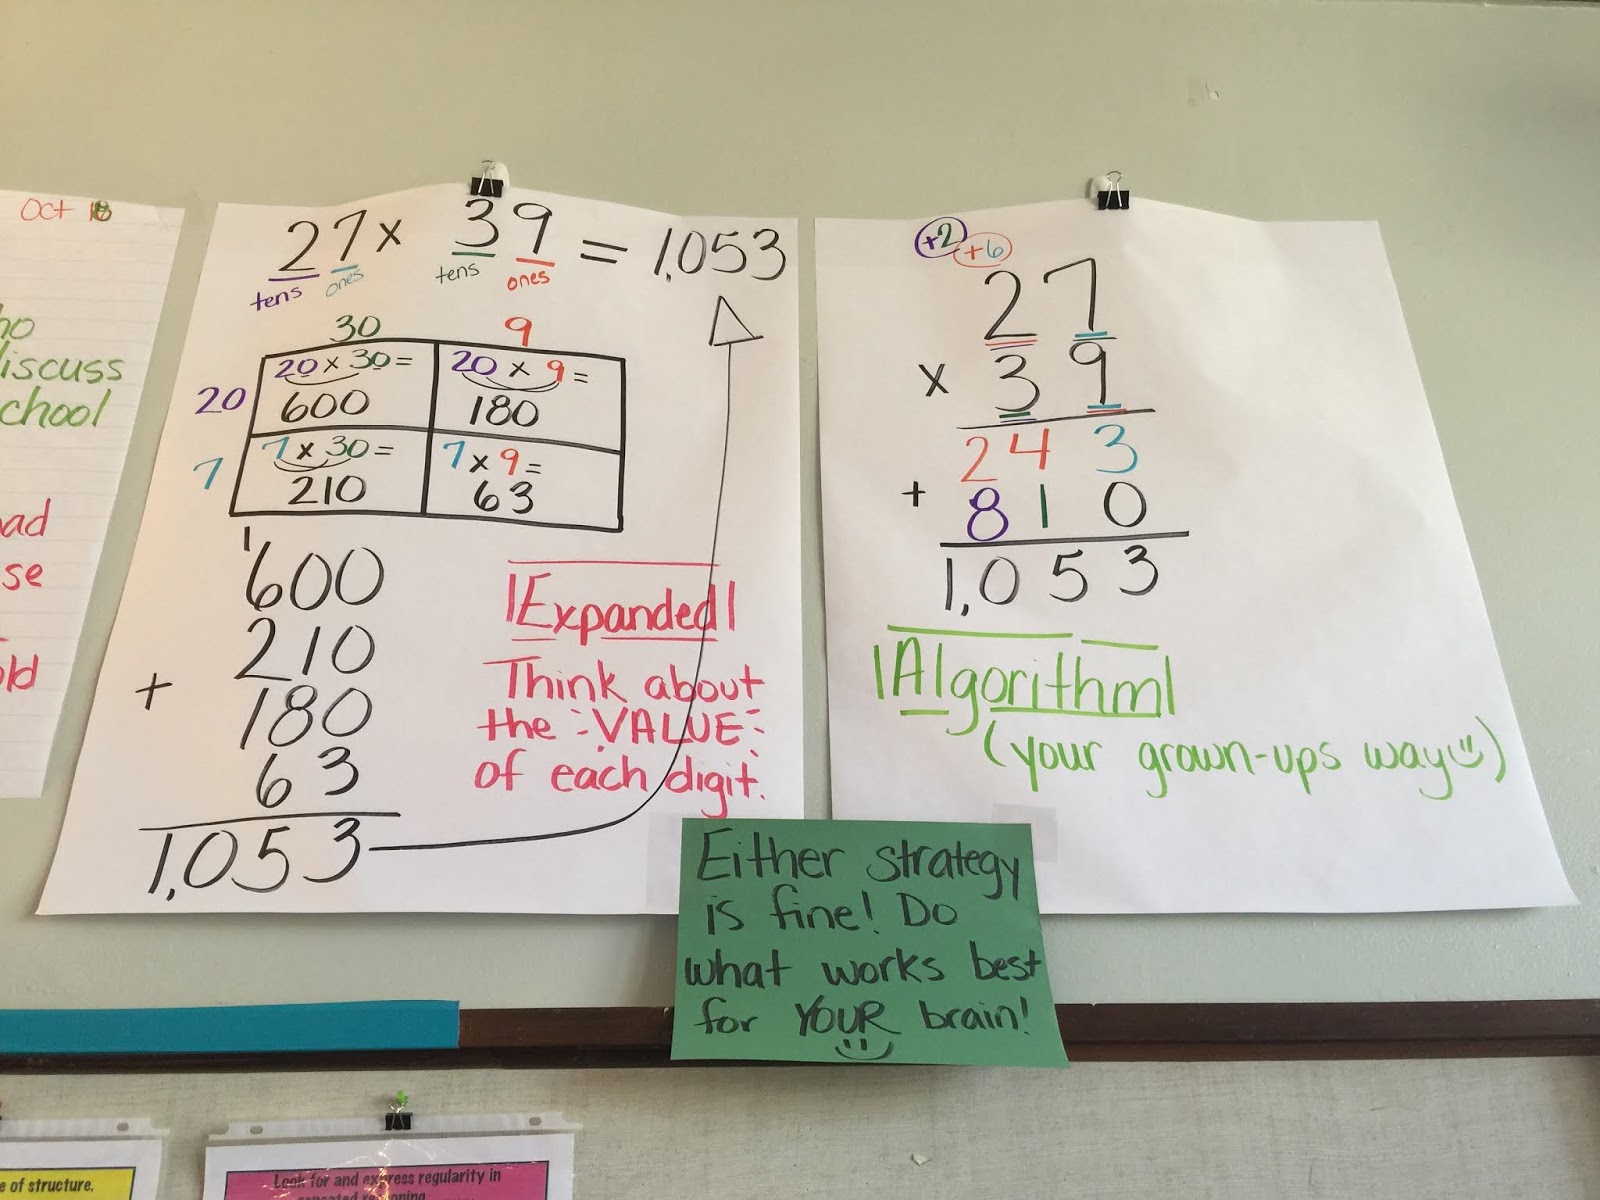 Oct 18
ho
discuss
school
had
se
old
27 x 39 = 1,053
tens ones tens ones
30 9
20 20 x 30 = 20 x 9 =
600 180
7 7 x 30 = 7 x 9 =
210 63
1
600
210
+ 180
63
1,053
Expanded
Think about
the VALUE
of each digit.
+2 +6
27
x 39
243
+ 810
1,053
Algorithm
(your grown-ups way)
Either strategy
is fine! Do
what works best
for YOUR brain!
e of structure.
Look for and express regularity in
repeated reasoning.